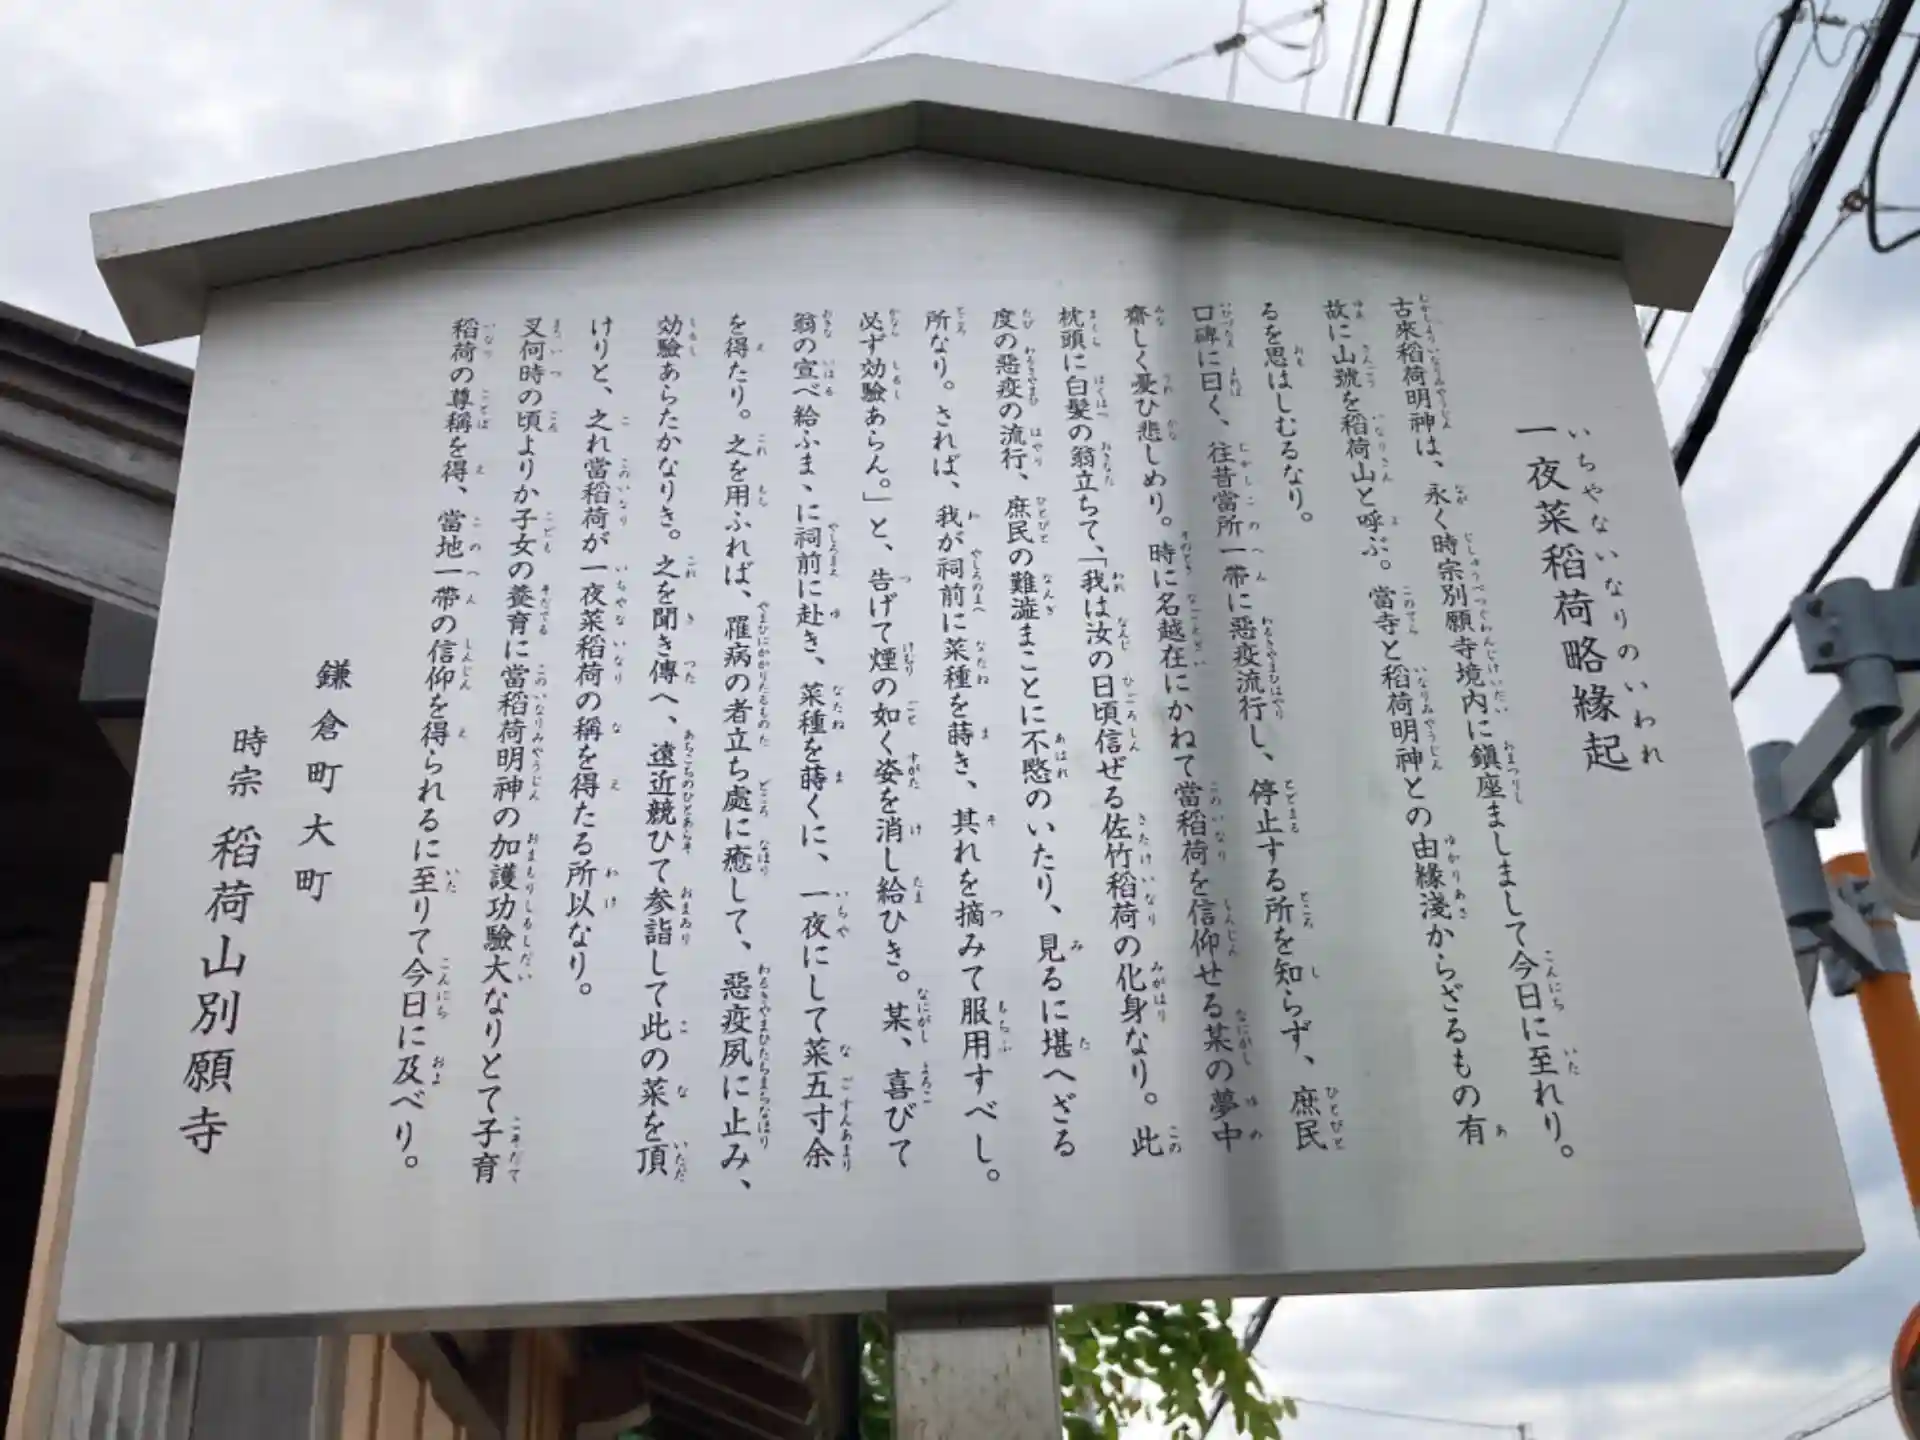 一夜菜稲荷略縁起
古來稲荷明神は、永く時宗別願寺境内に鎮座ましまして今日に至れり。
故に山號を稲荷山と呼ぶ。當寺と稲荷明神との由縁淺からざるもの有
るを思はしむるなり。
口碑に曰く、往昔當所一帯に惡疫流行し、停止する所を知らず、庶民
齋しく憂ひ悲しめり。時に名越在にかねて當稲荷を信仰せる某の夢中
枕頭に白髪の翁立ちて、「我は汝の日頃信ぜる佐竹稲荷の化身なり。此
度の惡疫の流行、庶民の難澁まことに不愍のいたり、見るに堪へざる
所なり。されば、我が祠前に菜種を蒔き、其れを摘みて服用すべし。
必ず効驗あらん。」と、告げて煙の如く姿を消し給ひき。某、喜びて
翁の宣べ給ふま、に祠前に赴き、菜種を蒔くに、一夜にして菜五寸余
を得たり。之を用ふれば、罹病の者立ち處に癒して、惡疫夙に止み、
効驗あらたかなりき。之を聞き傳へ、遠近競ひて参詣して此の菜を頂
けりと、之れ當稲荷が一夜菜稲荷の稱を得たる所以なり。
又何時の頃よりか子女の養育に當稲荷明神の加護功驗大なりとて子育
稲荷の尊稱を得、當地一帯の信仰を得られるに至りて今日に及べり。
鎌倉町大町
時宗 稲荷山別願寺